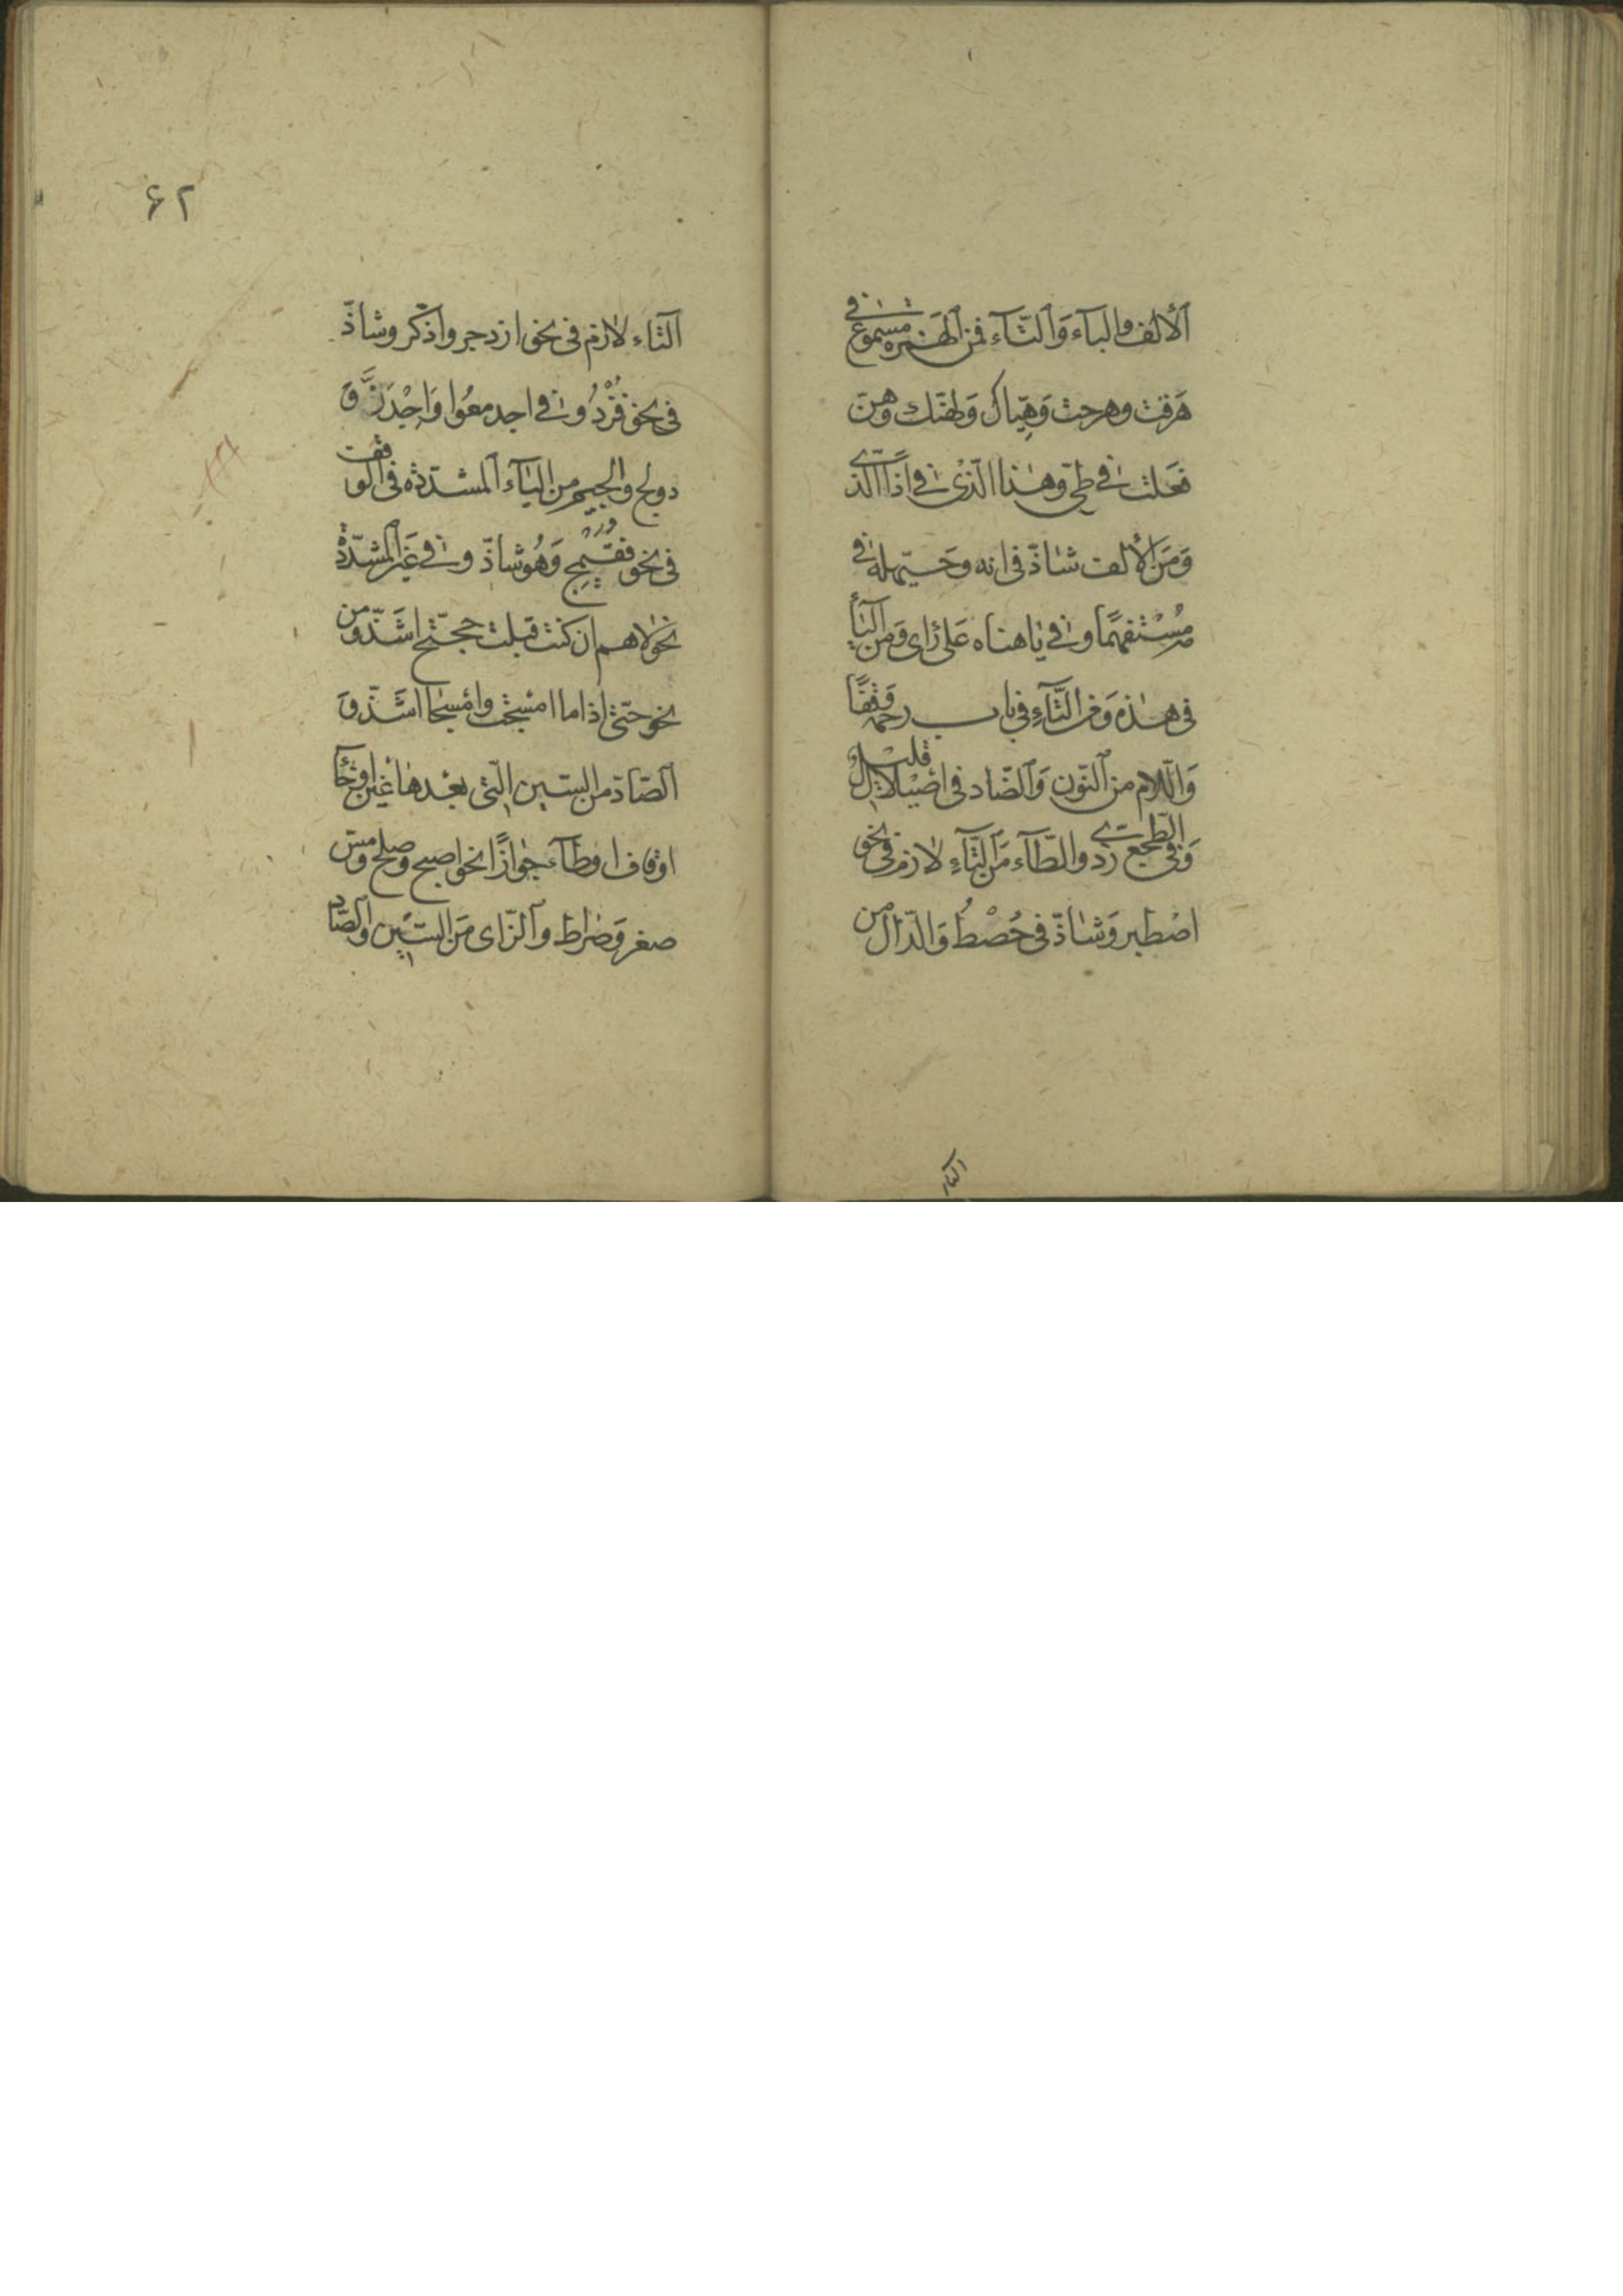 اَلْألف والباء وَالتّاء فمن الهَمزه مسموع فى
هَرقت وهرحت وَهِيّاك وَلهنّك وهن
فعَلت فى طىّ وهٰذا الّذى فى اَذا الّذى
وَمَن الألف شاذّ فى انه وحَيّهله فى
مه مُسْتفهمًا وفى ياهناه عَلى رَاى وَمن اليَاء
فى هٰذه وَمن التّآءِ فى باب رحمه وَقفًا
وَالّلام من النّون وَالضّاد فى اصَيْلال قليل
وَفى الطجع ردىّ والطّآء مَن التّاءِ لازم فى نحو
اصْطبر وَشاذّ فى حُصْطُ وَالدّال من
التاء
٤٢
اَلتاء لازم فى نحو ازدجر واذّكر وشاذّ
فى نحو فُزْدُ وفى اجدمعُوا وَاجْدَزَّ وَ
دولج والجيم من اليَاَء اَلمشدّده فى الوَقف
فى نحو فقَيْمِجّ وَهُو شاذّ وفى غَير المشدّدة
نحو لاهم ان كنت قبلت حجّتج اشَذّ ومن
نحو حتّى اذا ما امْسجَت وامْسجَا اشَذّ وَ
اَلصّاد من السّين الّتى بعْدها غَين اوخَآء
اوقاف اوطآء جوازًا نحو اصبح وصلخ ومسّ
صقر وَصراط وَالزّاى مَن السّين والصّاد